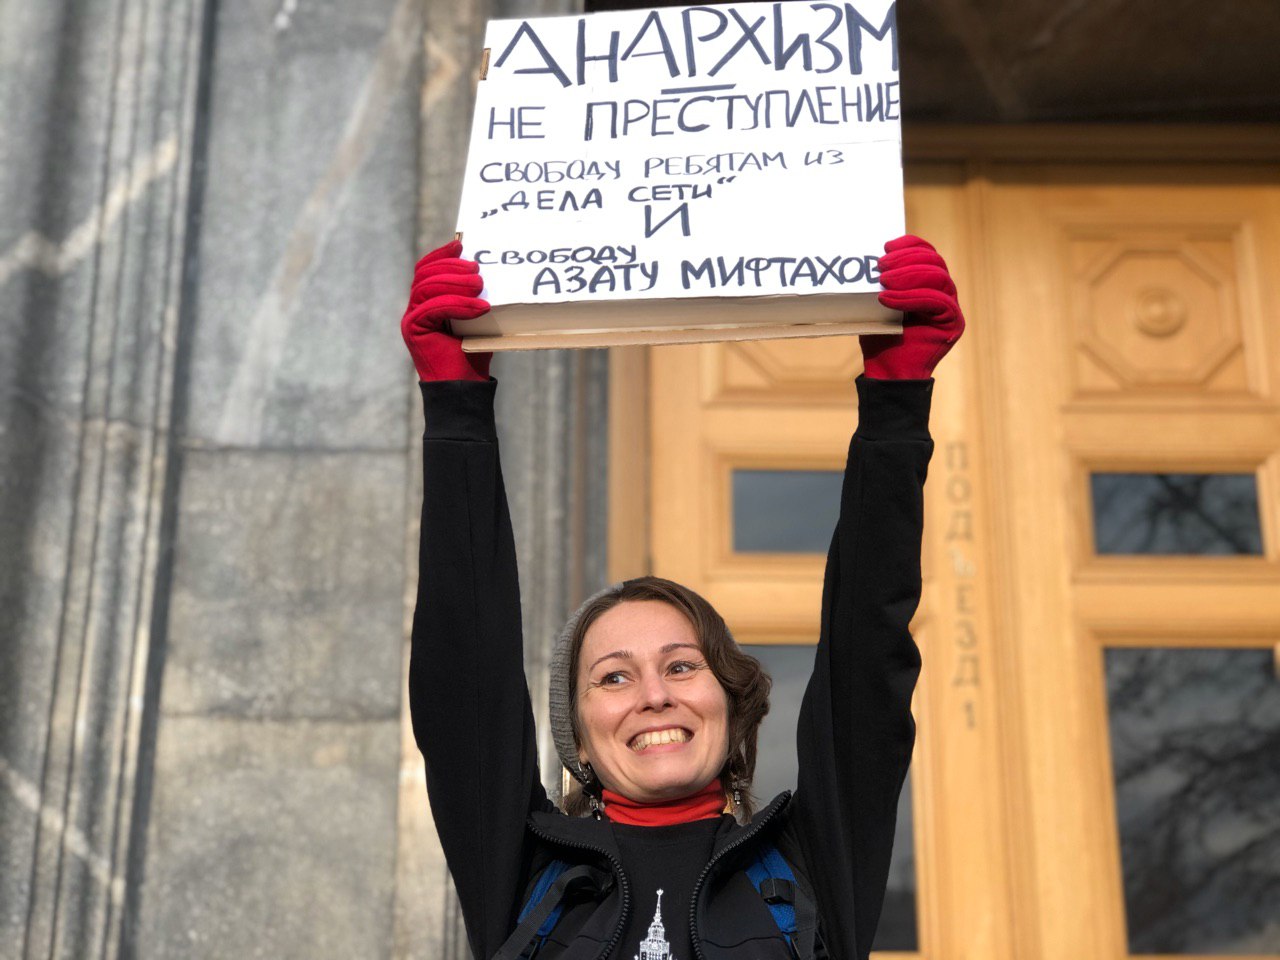 АНАРХИЗМ
НЕ ПРЕСТУПЛЕНИЕ
СВОБОДУ РЕБЯТАМ ИЗ
„ДЕЛА СЕТИ“
И
СВОБОДУ
АЗАТУ МИФТАХОВ
ПОДЪЕЗД 1